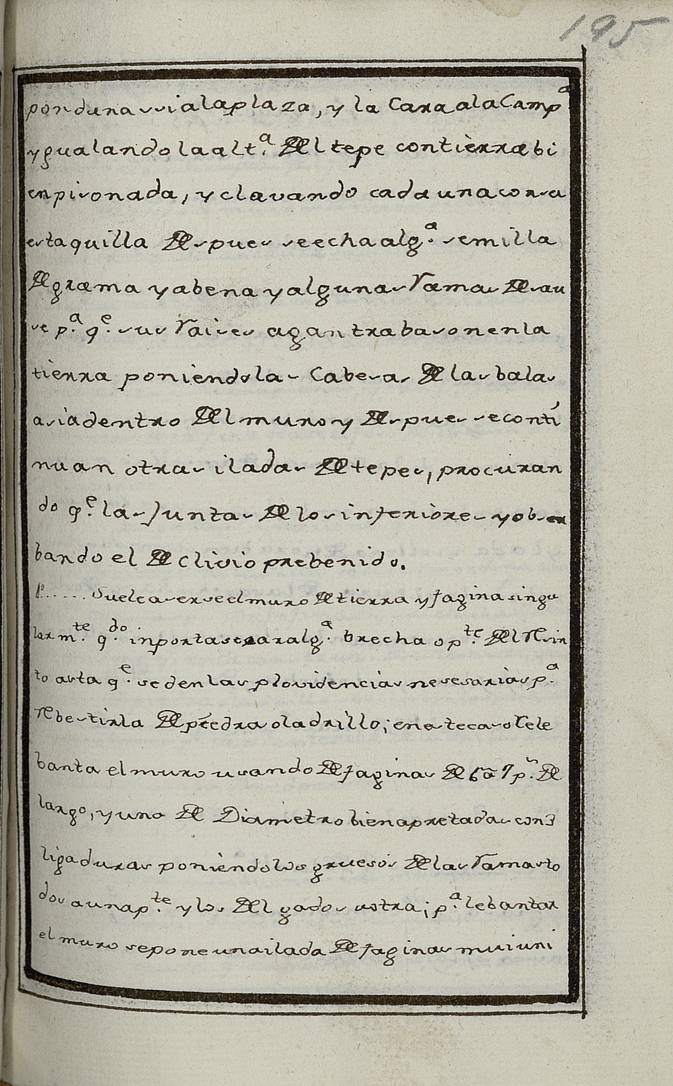 195
pondunas sia la plaza, y la Cara ala Campª
ygualando la altª. del tepe con tierra bi
en pisonada, y clavando cada una con su
estaquilla despues se echa algª. semilla
de grama y abena y algunas Ramas de sau
se pª. qᵉ. sus Raises agan trabason en la
tierra poniendolas Cabesas de las balas
asia dentro del muro y despues se conti
nuan otras iladas de tepes, procuran
do qᵉ. las Juntas de los inferiores y obser
bando el declivio prebenido.
1º..... Suele aserse el muro de tierra y fagina singu
larmᵗᵉ. qᵈᵒ. inporta serar algª. brecha o pᵗᵉ. del Resin
to asta qᵉ. se den las plovidencias nesesarias pª.
Rebestirla de piedra o ladrillo; en este caso se le
banta el muro usando de faginas de 6 â 7 pˢ. de
largo, y uno de Diametro bien apretadas con 3
ligaduras poniendo los gruesos de las Ramas to
dos a una pᵗᵉ. y los delgados a otra; pª. lebantar
el muro se pone una ilada de faginas mui uni